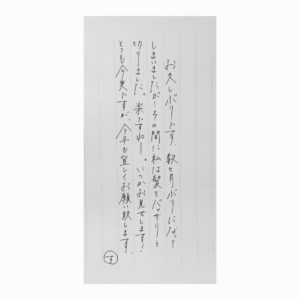 お久しぶりです。数ヶ月ぶりになって
しまいましたが…その間に私は髪をバッサリと
切りました。楽ですねー。いつかお見せします!
とても今更ですが、今年も宜しくお願い致します。
す